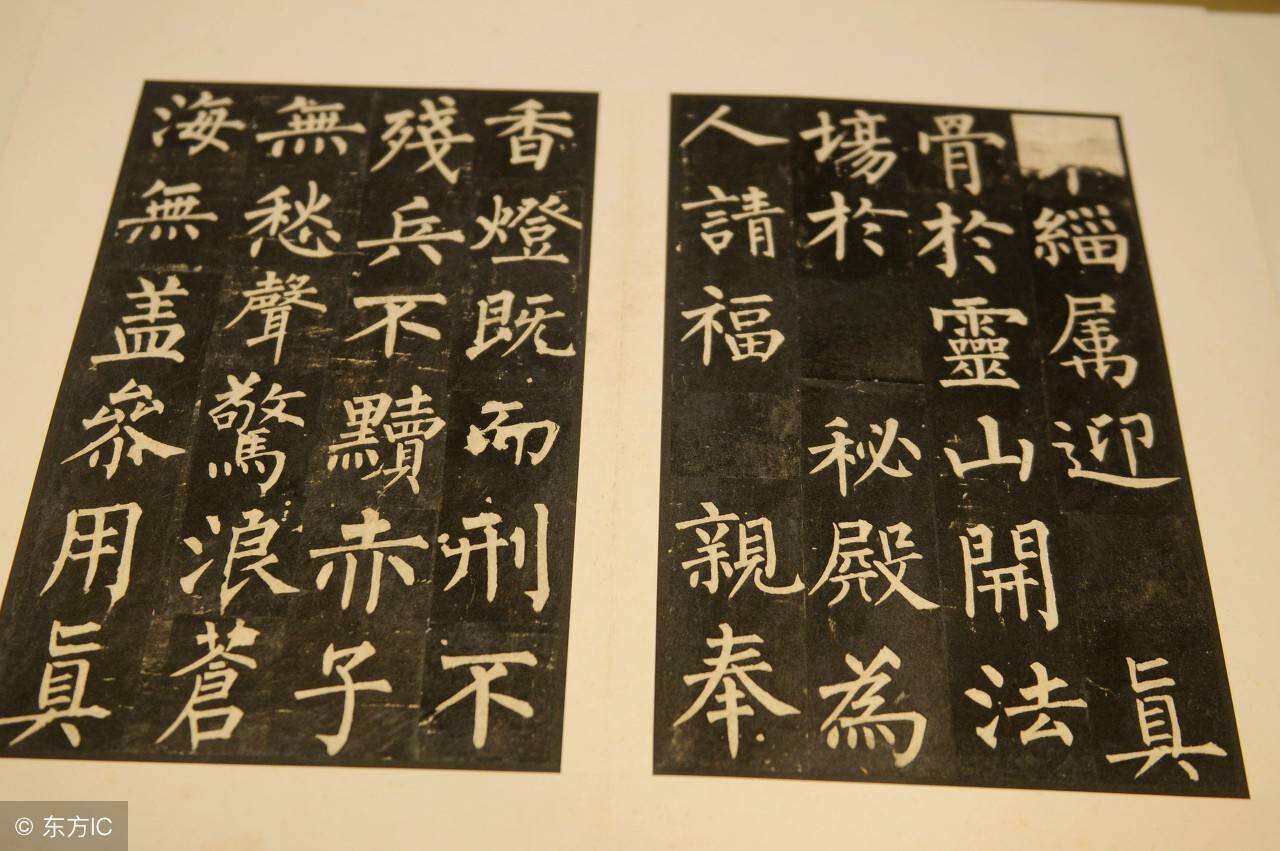 緇属迎眞
骨於靈山開法
塲於秘殿為
人請福親奉
香燈既而刑不
殘兵不黷赤子
無愁聲驚浪蒼
海無盖參用眞
© 东方IC